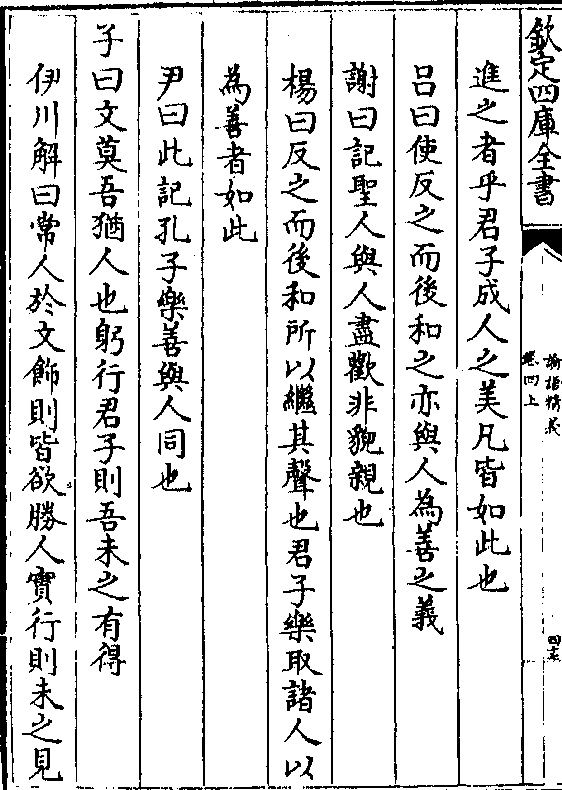 欽定四庫全書
論語精義
卷四上
進之者乎君子成人之美凡皆如此也
呂曰使反之而後和之亦與人為善之義
謝曰記聖人與人盡歡非貌親也
楊曰反之而後和所以繼其聲也君子樂取諸人以
為善者如此
尹曰此記孔子樂善與人同也
子曰文莫吾猶人也躬行君子則吾未之有得
伊川解曰常人於文飾則皆欲勝人實行則未之見